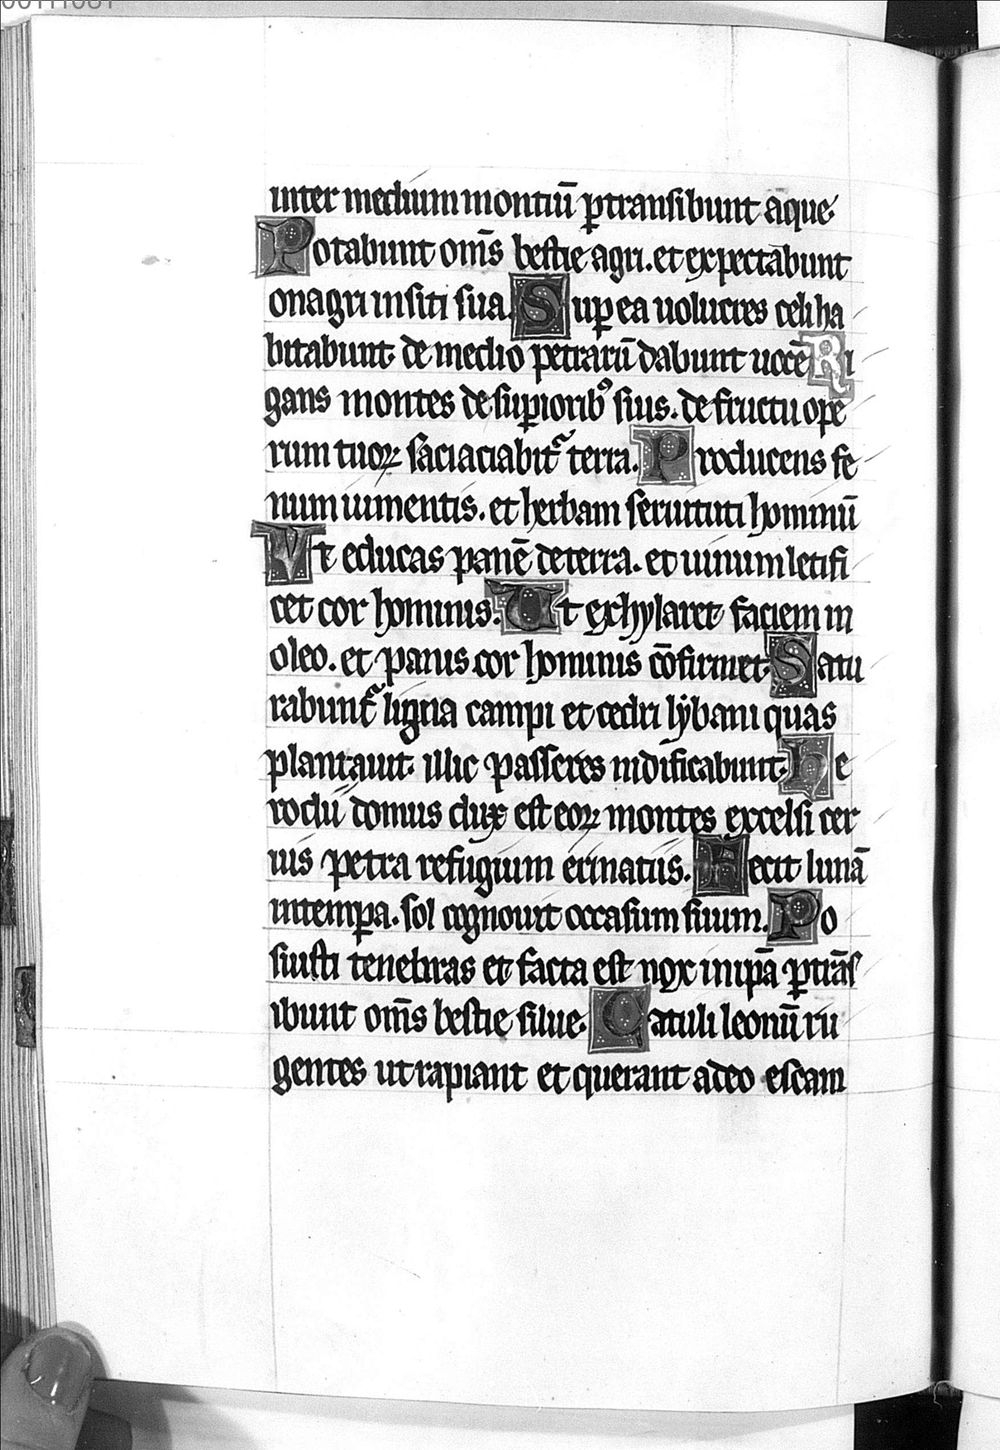 00111081
inter medium montiū ꝑtransibunt aque
Potabunt om̄s bestie agri. et expectabunt
onagri in siti sua. Suꝑ ea uolucres celi ha
bitabunt. de medio petrarū dabunt uocē Ri
gans montes de suꝑiorib᷒ suis. de fructu oꝑe
rum tuoꝝ saciaciabit᷑ terra. Producens fe
num iumentis. et herbam seruituti hominū
Vt educas panē de terra. et uinum letifi
cet cor hominis. Ut exhylaret faciem in
oleo. et panis cor hominis cōfirmet. Satu
rabunt᷑ ligna campi et cedri lybani quas
plantauit. illic passeres nidificabunt. he
rodii domus dux est eoꝝ montes excelsi cer
uis petra refugium erinatiis. Fecit lunā
in tempa. sol cognouit occasum suum. Po
suisti tenebras et facta est nox in ipā ꝑtrās
ibunt om̄s bestie silue. Catuli leonū ru
gentes ut rapiant et querant a deo escam